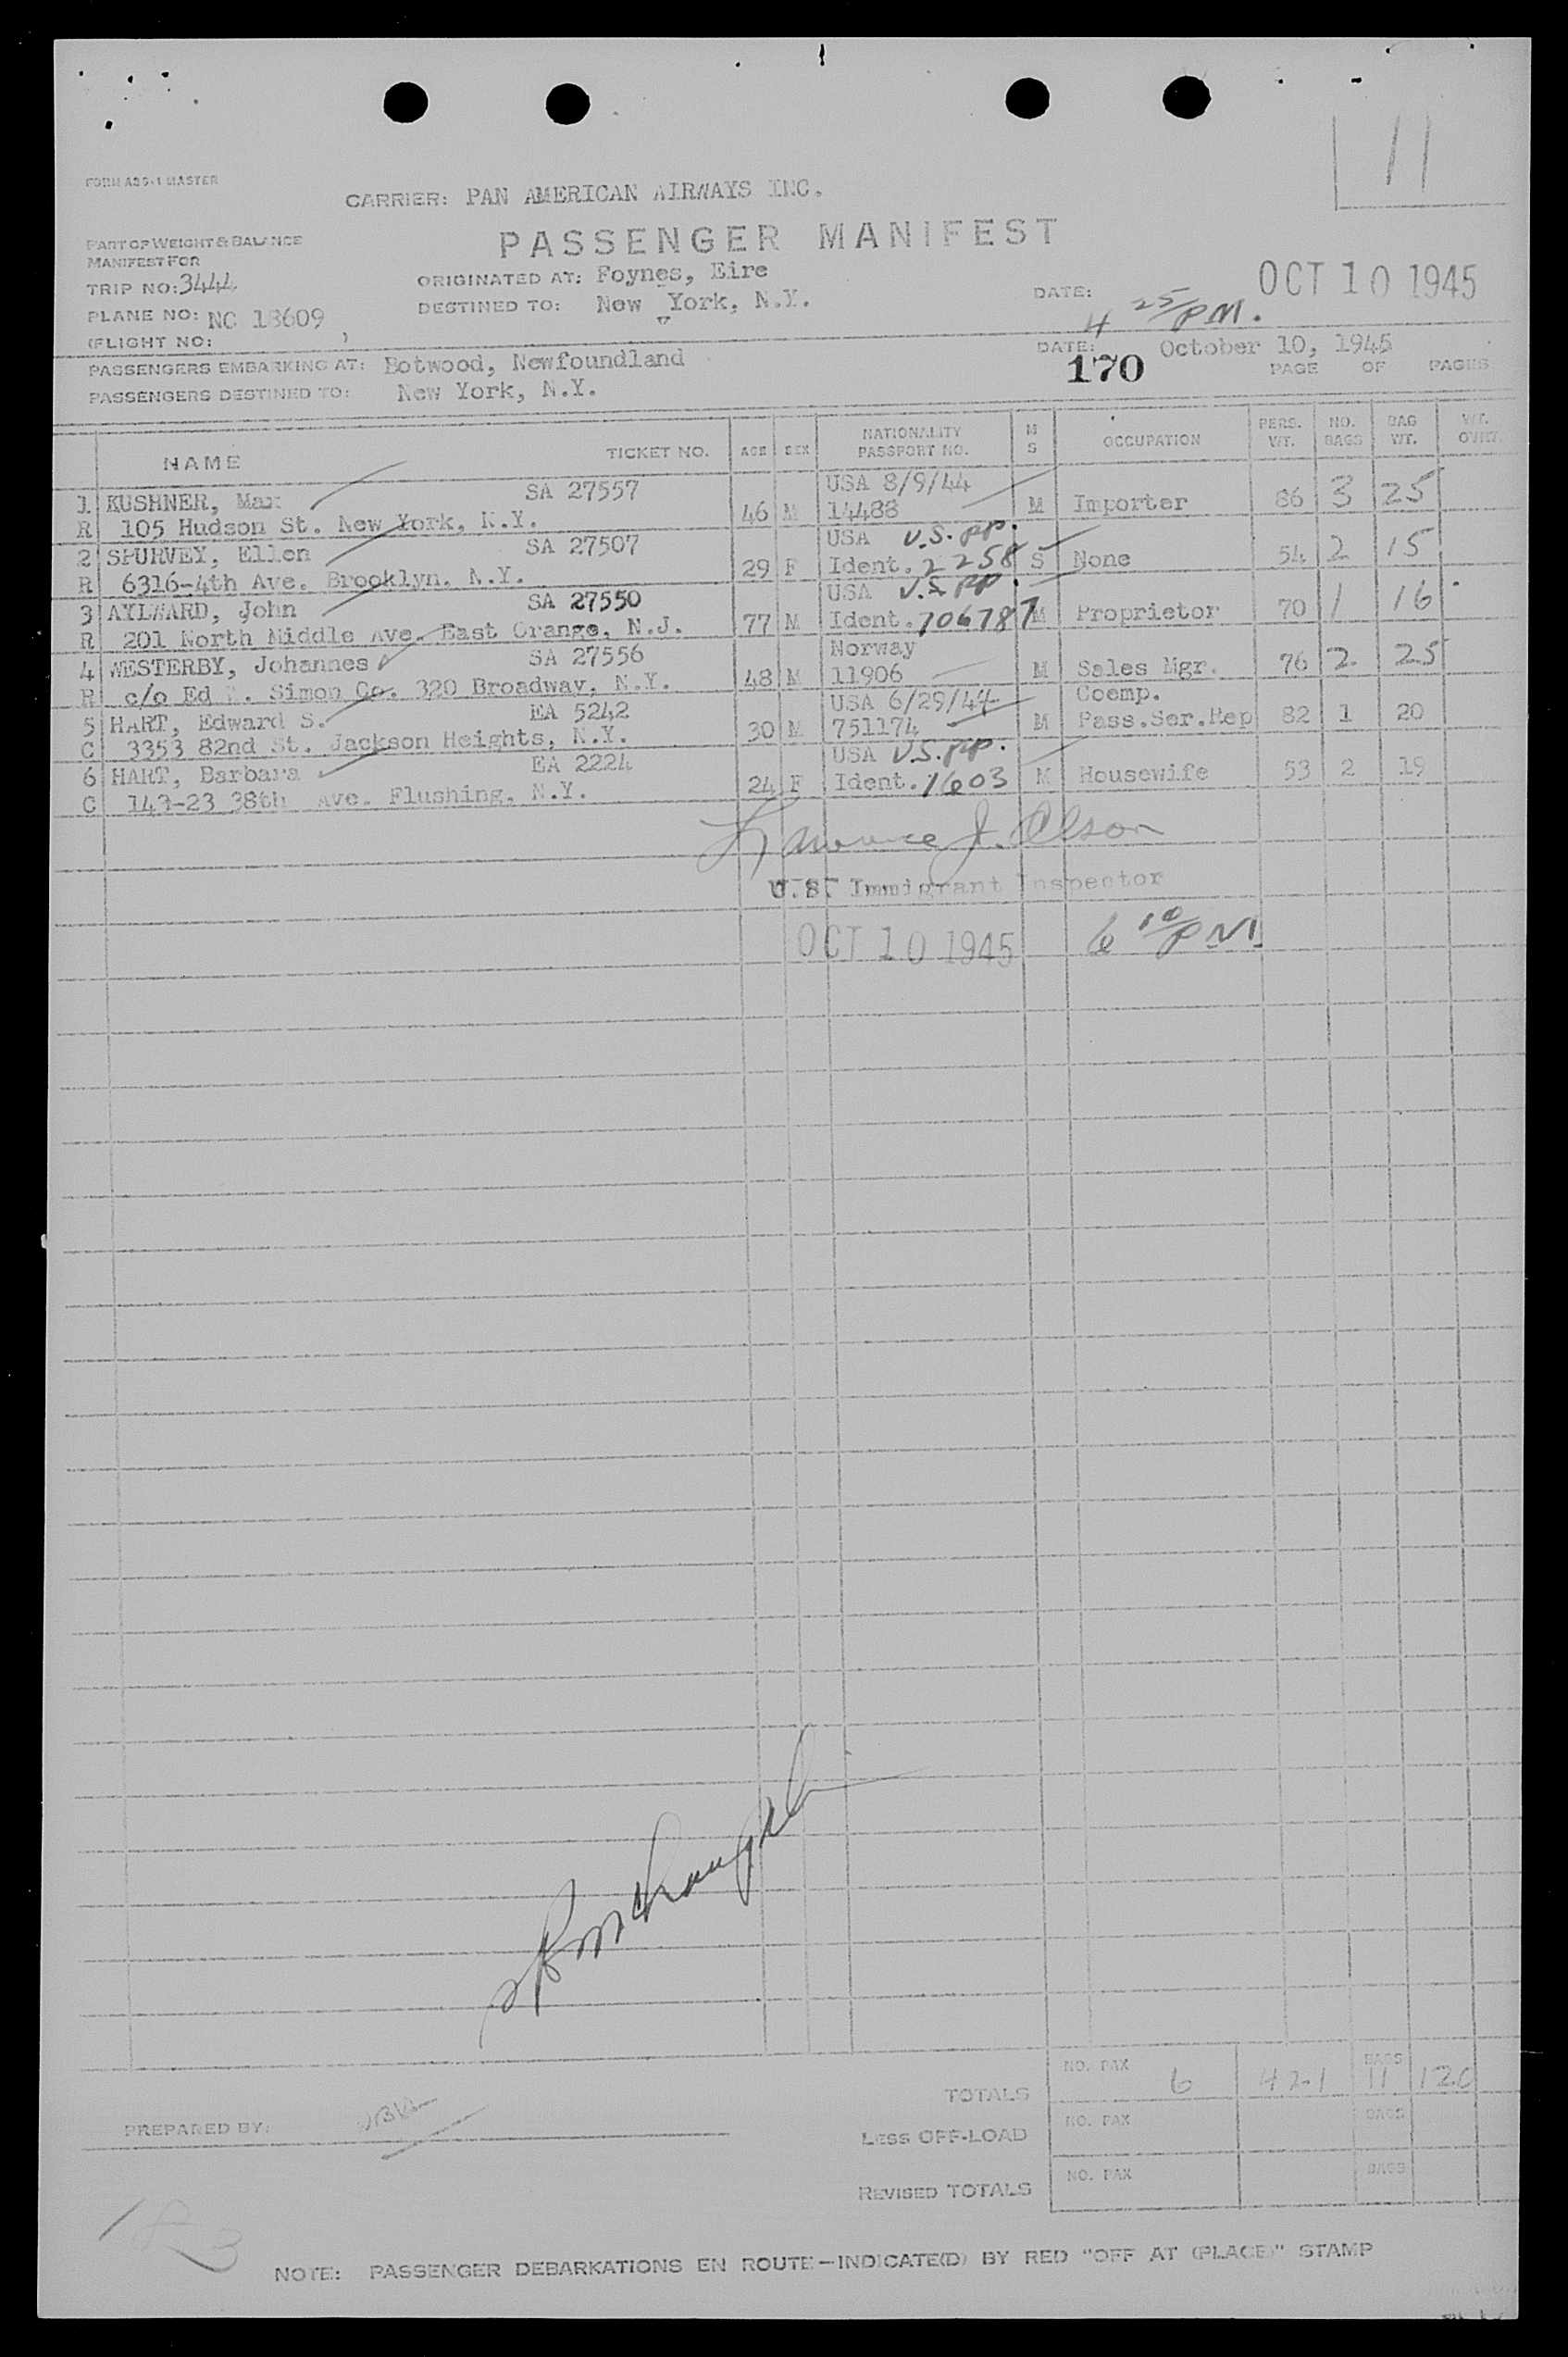 11
FORM A39-1 MASTER
CARRIER: PAN AMERICAN AIRWAYS INC.
PASSENGER MANIFEST
PART OF WEIGHT & BALANCE
MANIFEST FOR
TRIP NO: 3444
ORIGINATED AT: Foynes, Eire
DATE: OCT 10 1945
PLANE NO: NC 18609
DESTINED TO: New York, N.Y.
4 25/PM.
(FLIGHT NO: )
PASSENGERS EMBARKING AT: Botwood, Newfoundland
DATE: October 10, 1945
PASSENGERS DESTINED TO: New York, N.Y.
170 PAGE OF PAGES
NAME TICKET NO. AGE SEX NATIONALITY PASSPORT NO. M S OCCUPATION PERS. WT. NO. BAGS BAG WT. WT.
1 KUSHNER, Max SA 27557 USA 8/9/44
R 105 Hudson St. New York, N.Y. 46 M 14488 M Importer 86 3 25
2 SPURVEY, Ellen SA 27507 USA U.S. PP.
R 6316-4th Ave. Brooklyn. N.Y. 29 F Ident. 2258 S None 54 2 15
3 AYLWARD, John SA 27550 USA U.S PP.
R 201 North Middle Ave. East Orange, N.J. 77 M Ident. 706787 M Proprietor 70 1 16
4 WESTERBY, Johannes SA 27556 Norway
R c/o Ed . Simon Co. 320 Broadway, N.Y. 48 M 11906 M Sales Mgr. 76 2 25
5 HART, Edward S. EA 5242 USA 6/29/44 Coemp.
C 3353 82nd St. Jackson Heights, N.Y. 30 M 751174 M Pass.Ser.Rep 82 1 20
6 HART, Barbara EA 2224 USA U.S. PP.
C 147-23 38th Ave. Flushing, N.Y. 24 F Ident. 1603 M Housewife 53 2 19
Lawrence J. Olson
U.S. Immigrant Inspector
OCT 10 1945 6 10/PM
TOTALS NO. PAX 6 421 BAGS 11 120
PREPARED BY:
LESS OFF-LOAD NO. PAX BAGS
REVISED TOTALS NO. PAX BAGS
NOTE: PASSENGER DEBARKATIONS EN ROUTE—INDICATE(D) BY RED "OFF AT (PLACE)" STAMP